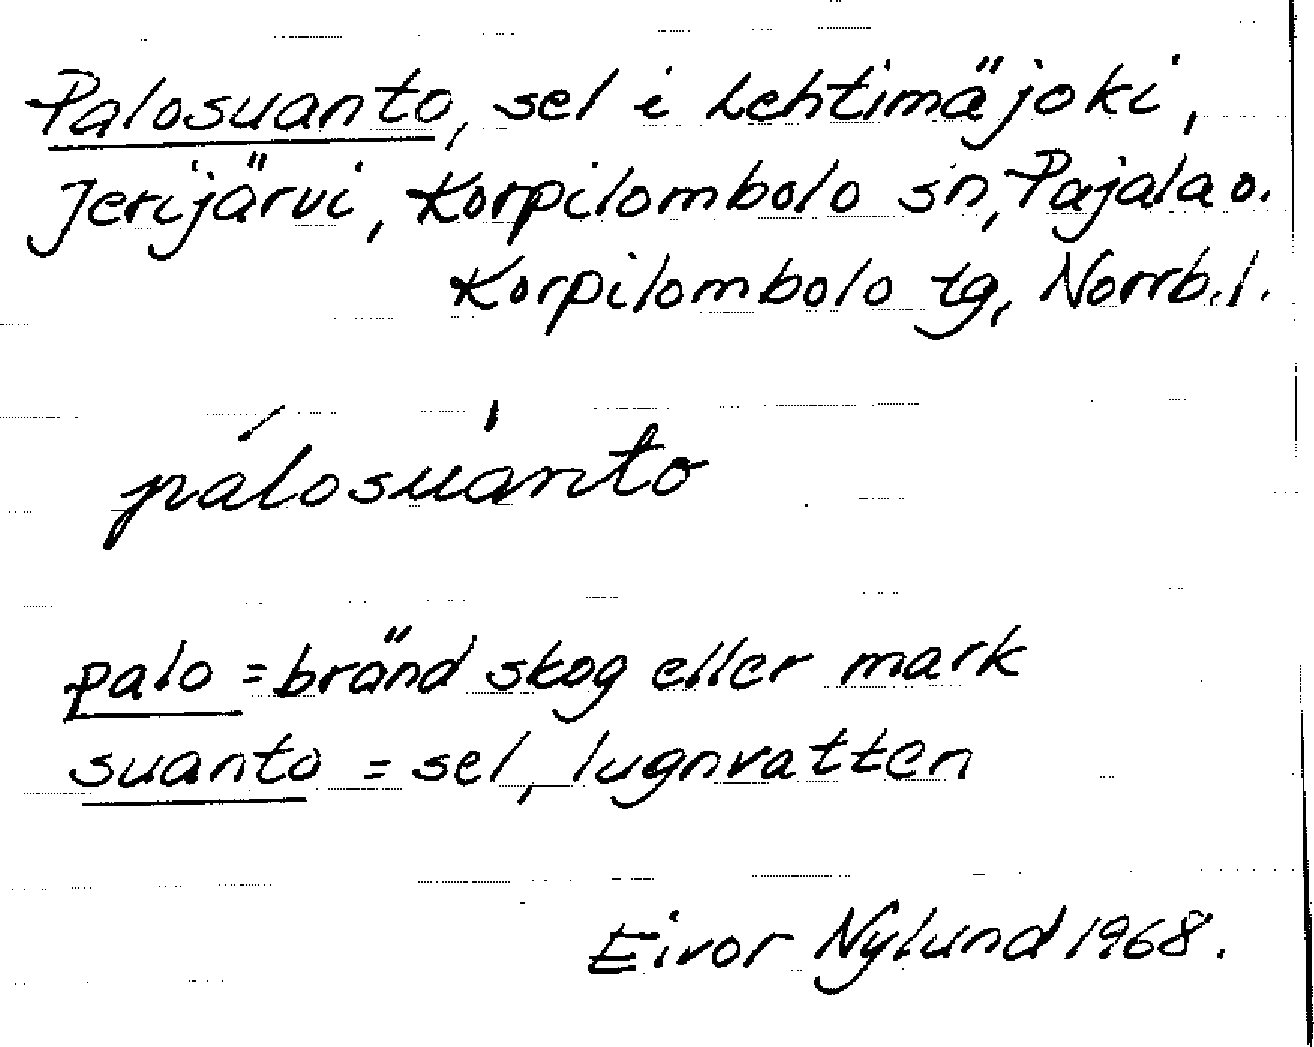 Palosuanto, sel i Lehtimäjoki,
Jerijärvi, Korpilombolo sn, Pajala o.
Korpilombolo tg, Norrb. l.
pálosùanto
palo = bränd skog eller mark
suanto = sel, lugnvatten
Eivor Nylund 1968.